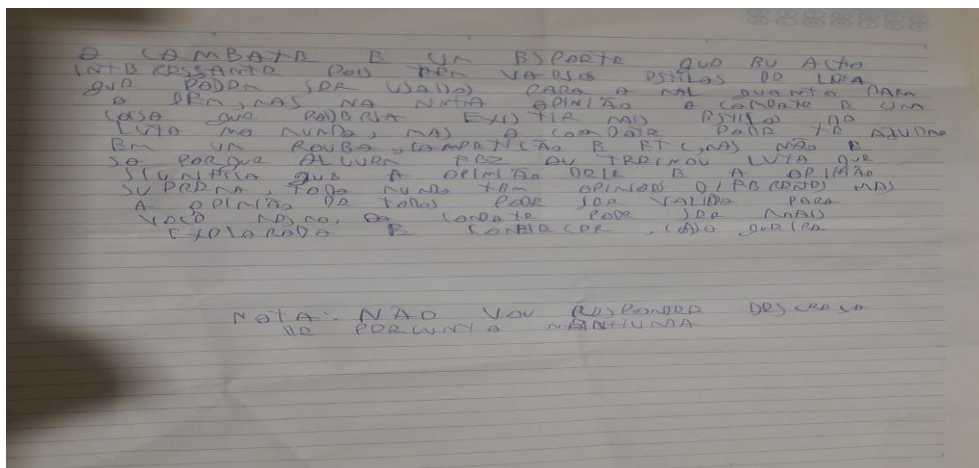 O COMBATE E UM ESPORTE QUE EU ACHO
INTERESSANTE POIS TEM VARIOS ESTILOS DE LUTA
QUE PODEM SER USADOS PARA O MAL QUANTO PARA
O BEM, MAS NA MINHA OPINIÃO O COMBATE E UMA
COISA QUE PODERIA EXISTIR MAIS ESTILOS DE
LUTA NO MUNDO, MAS O COMBATE PODE TE AJUDAR
EM UM ROUBO, COMPETICÃO E ETC, MAS NÃO E
SO PORQUE ALGUEM FEZ OU TREINOU LUTA QUE
SIGNIFICA QUE A OPINIÃO DELE E A OPINIÃO
SUPREMA, TODO MUNDO TEM OPINIOES DIFERENTES MAS
A OPINIÃO DE TODOS PODE SER VALIDA PARA
VOCE MESMO, COMBATE PODE SER MAIS
EXPLORADA E CONHECER, CASO QUEIRA
NOTA: NÃO VOU RESPONDER
DE PERGUNTA NENHUMA